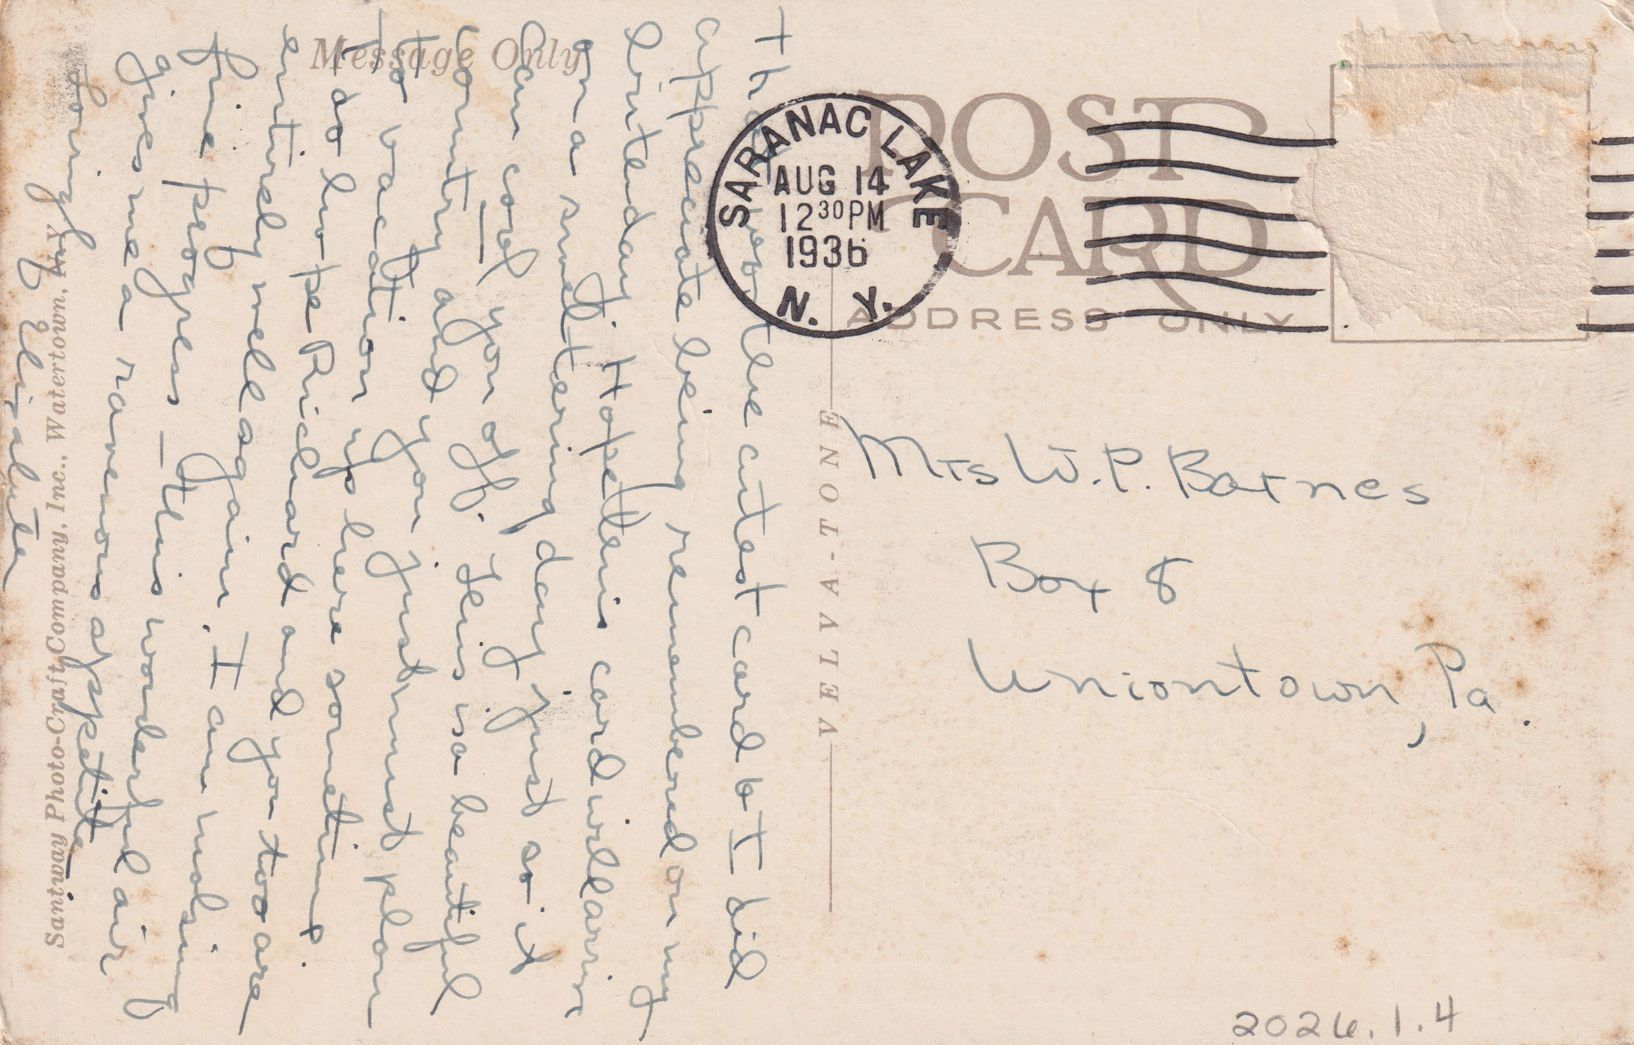 Message Only
POST
CARD
ADDRESS ONLY
SARANAC LAKE
AUG 14
12 30 PM
1936
N. Y.
Thanks for the cutest card & I did
appreciate being remembered on my
birthday. Hope this card will arrive
on a sweltering day just so it
can cool you off. This is a beautiful
country and you just must plan
to vacation up here sometime
I do hope Richard and you too are
entirely well again. I am making
fine progress – this wonderful air
gives me a ravenous appetite.
Lovingly Elizabeth
VELVA-TONE
Santway Photo-Craft Company, Inc., Watertown, N.Y.
Mrs W.P. Barnes
Box 8
Uniontown, Pa.
2026.1.4